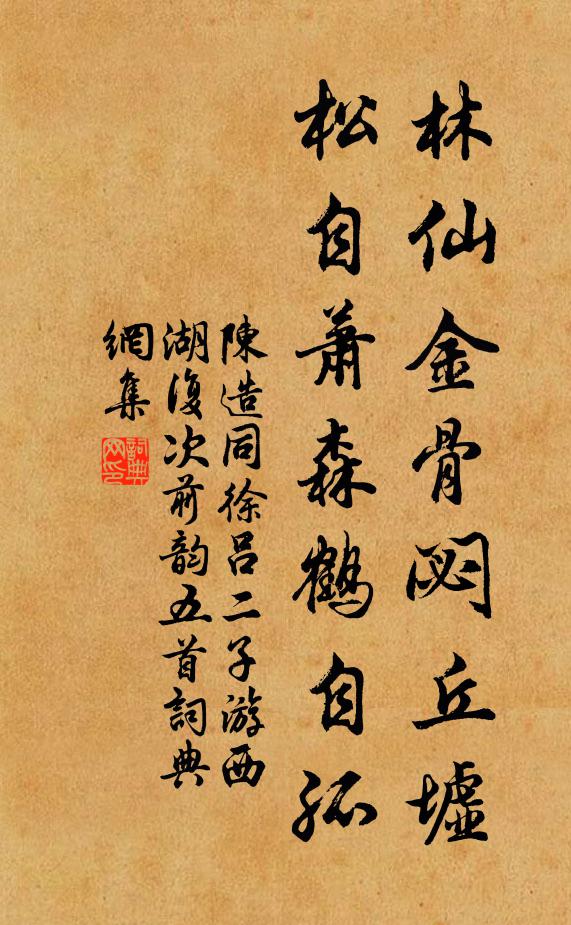 林仙金骨閟丘墟
松自蕭森鶴自孤
陳造同徐呂二子游西
湖復次前韵五首詞典
網集
詞典
网印